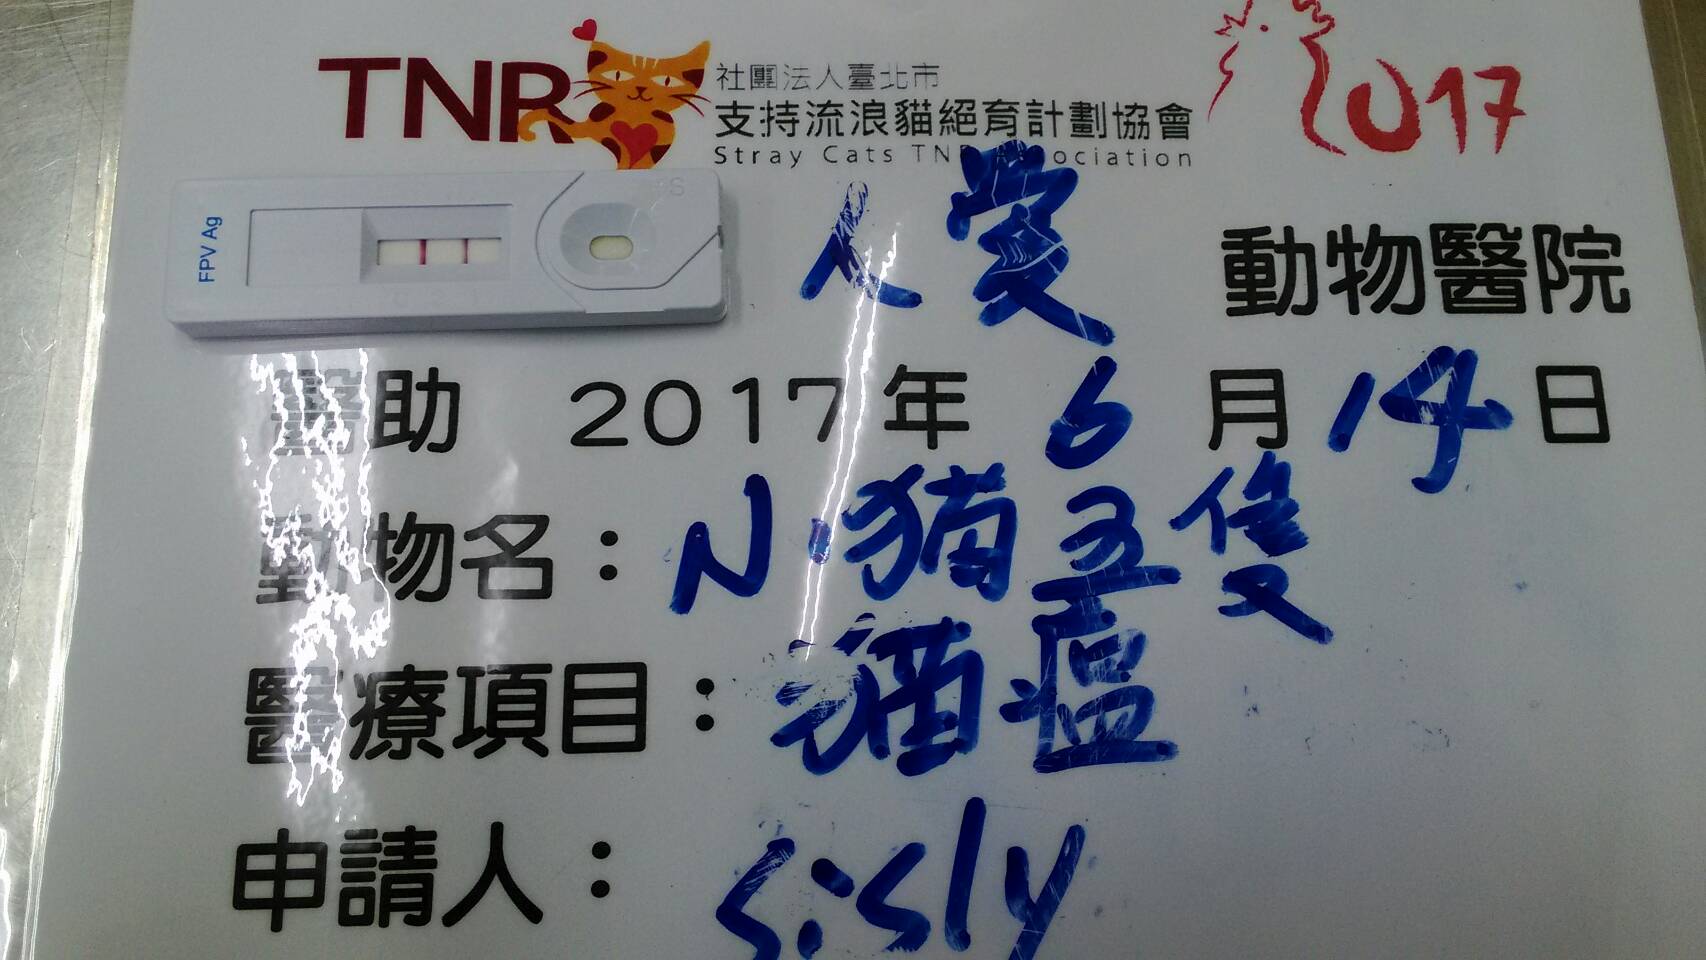 TNR
社團法人臺北市
支持流浪貓絕育計劃協會
Stray Cats TNR Association
2017
FPV Ag
S
人愛 動物醫院
醫助 2017年 6 月 14 日
動物名：小猫五隻
醫療項目：猫瘟
申請人：sisly